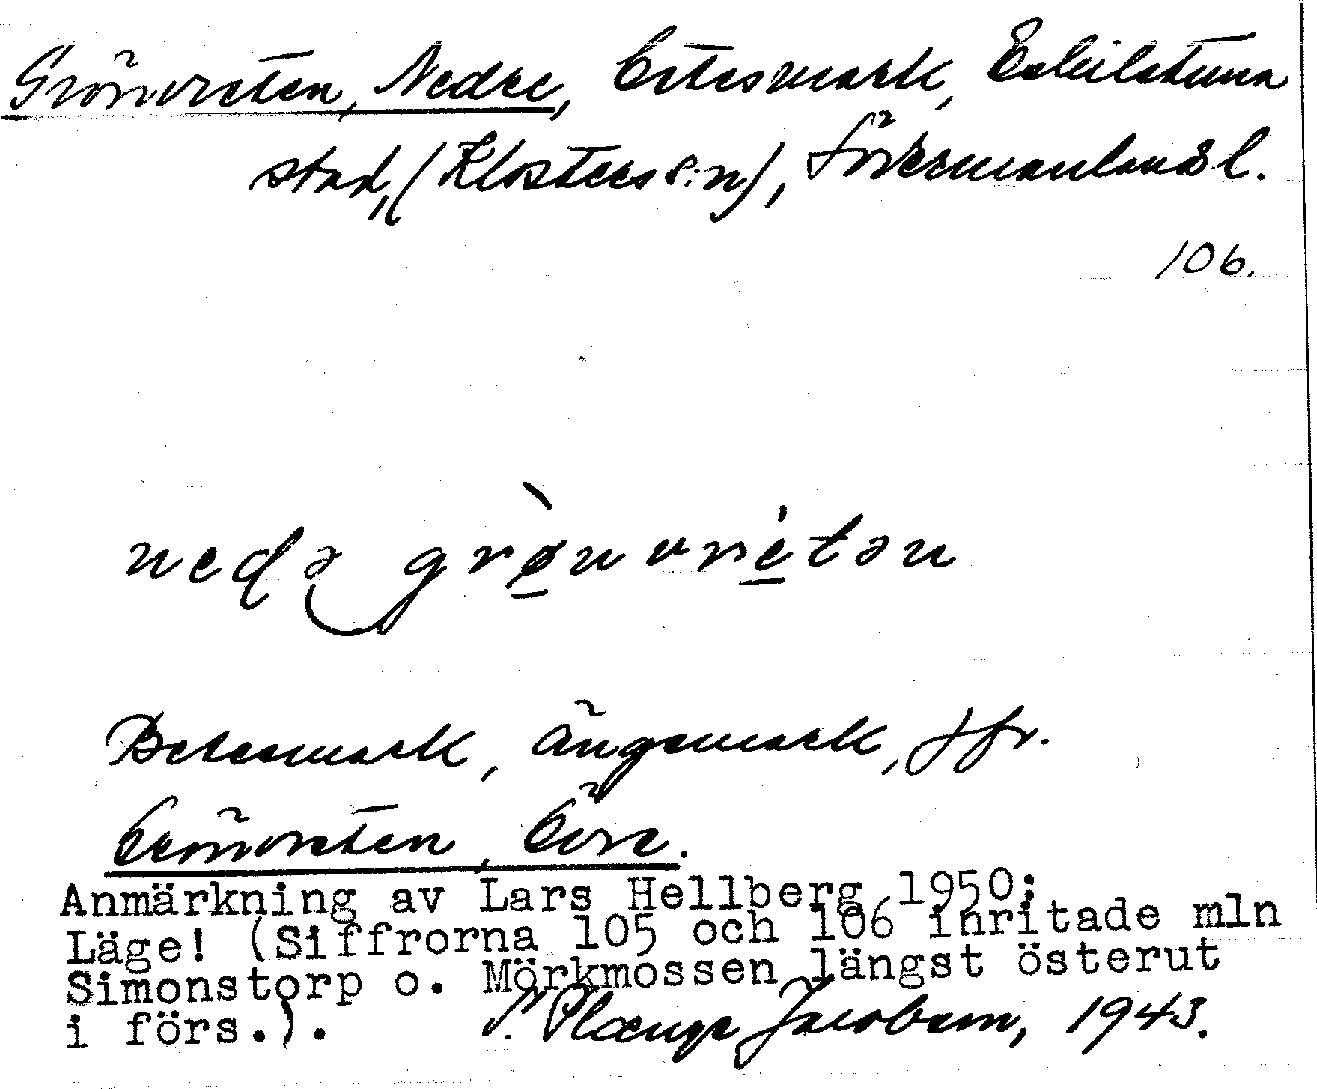 Grönvreten, Nedre, betesmark, Eskilstuna
stad, (Klosters s:n), Södermanlands l.
106.
nedə grø̀nvrètən
Betesmark, ängsmark, jfr.
Grönvreten, Övre.
Anmärkning av Lars Hellberg 1950:
Läge! (Siffrorna 105 och 106 inritade mln
Simonstorp o. Mörkmossen längst österut
i förs.).
Jacobsen, 1943.